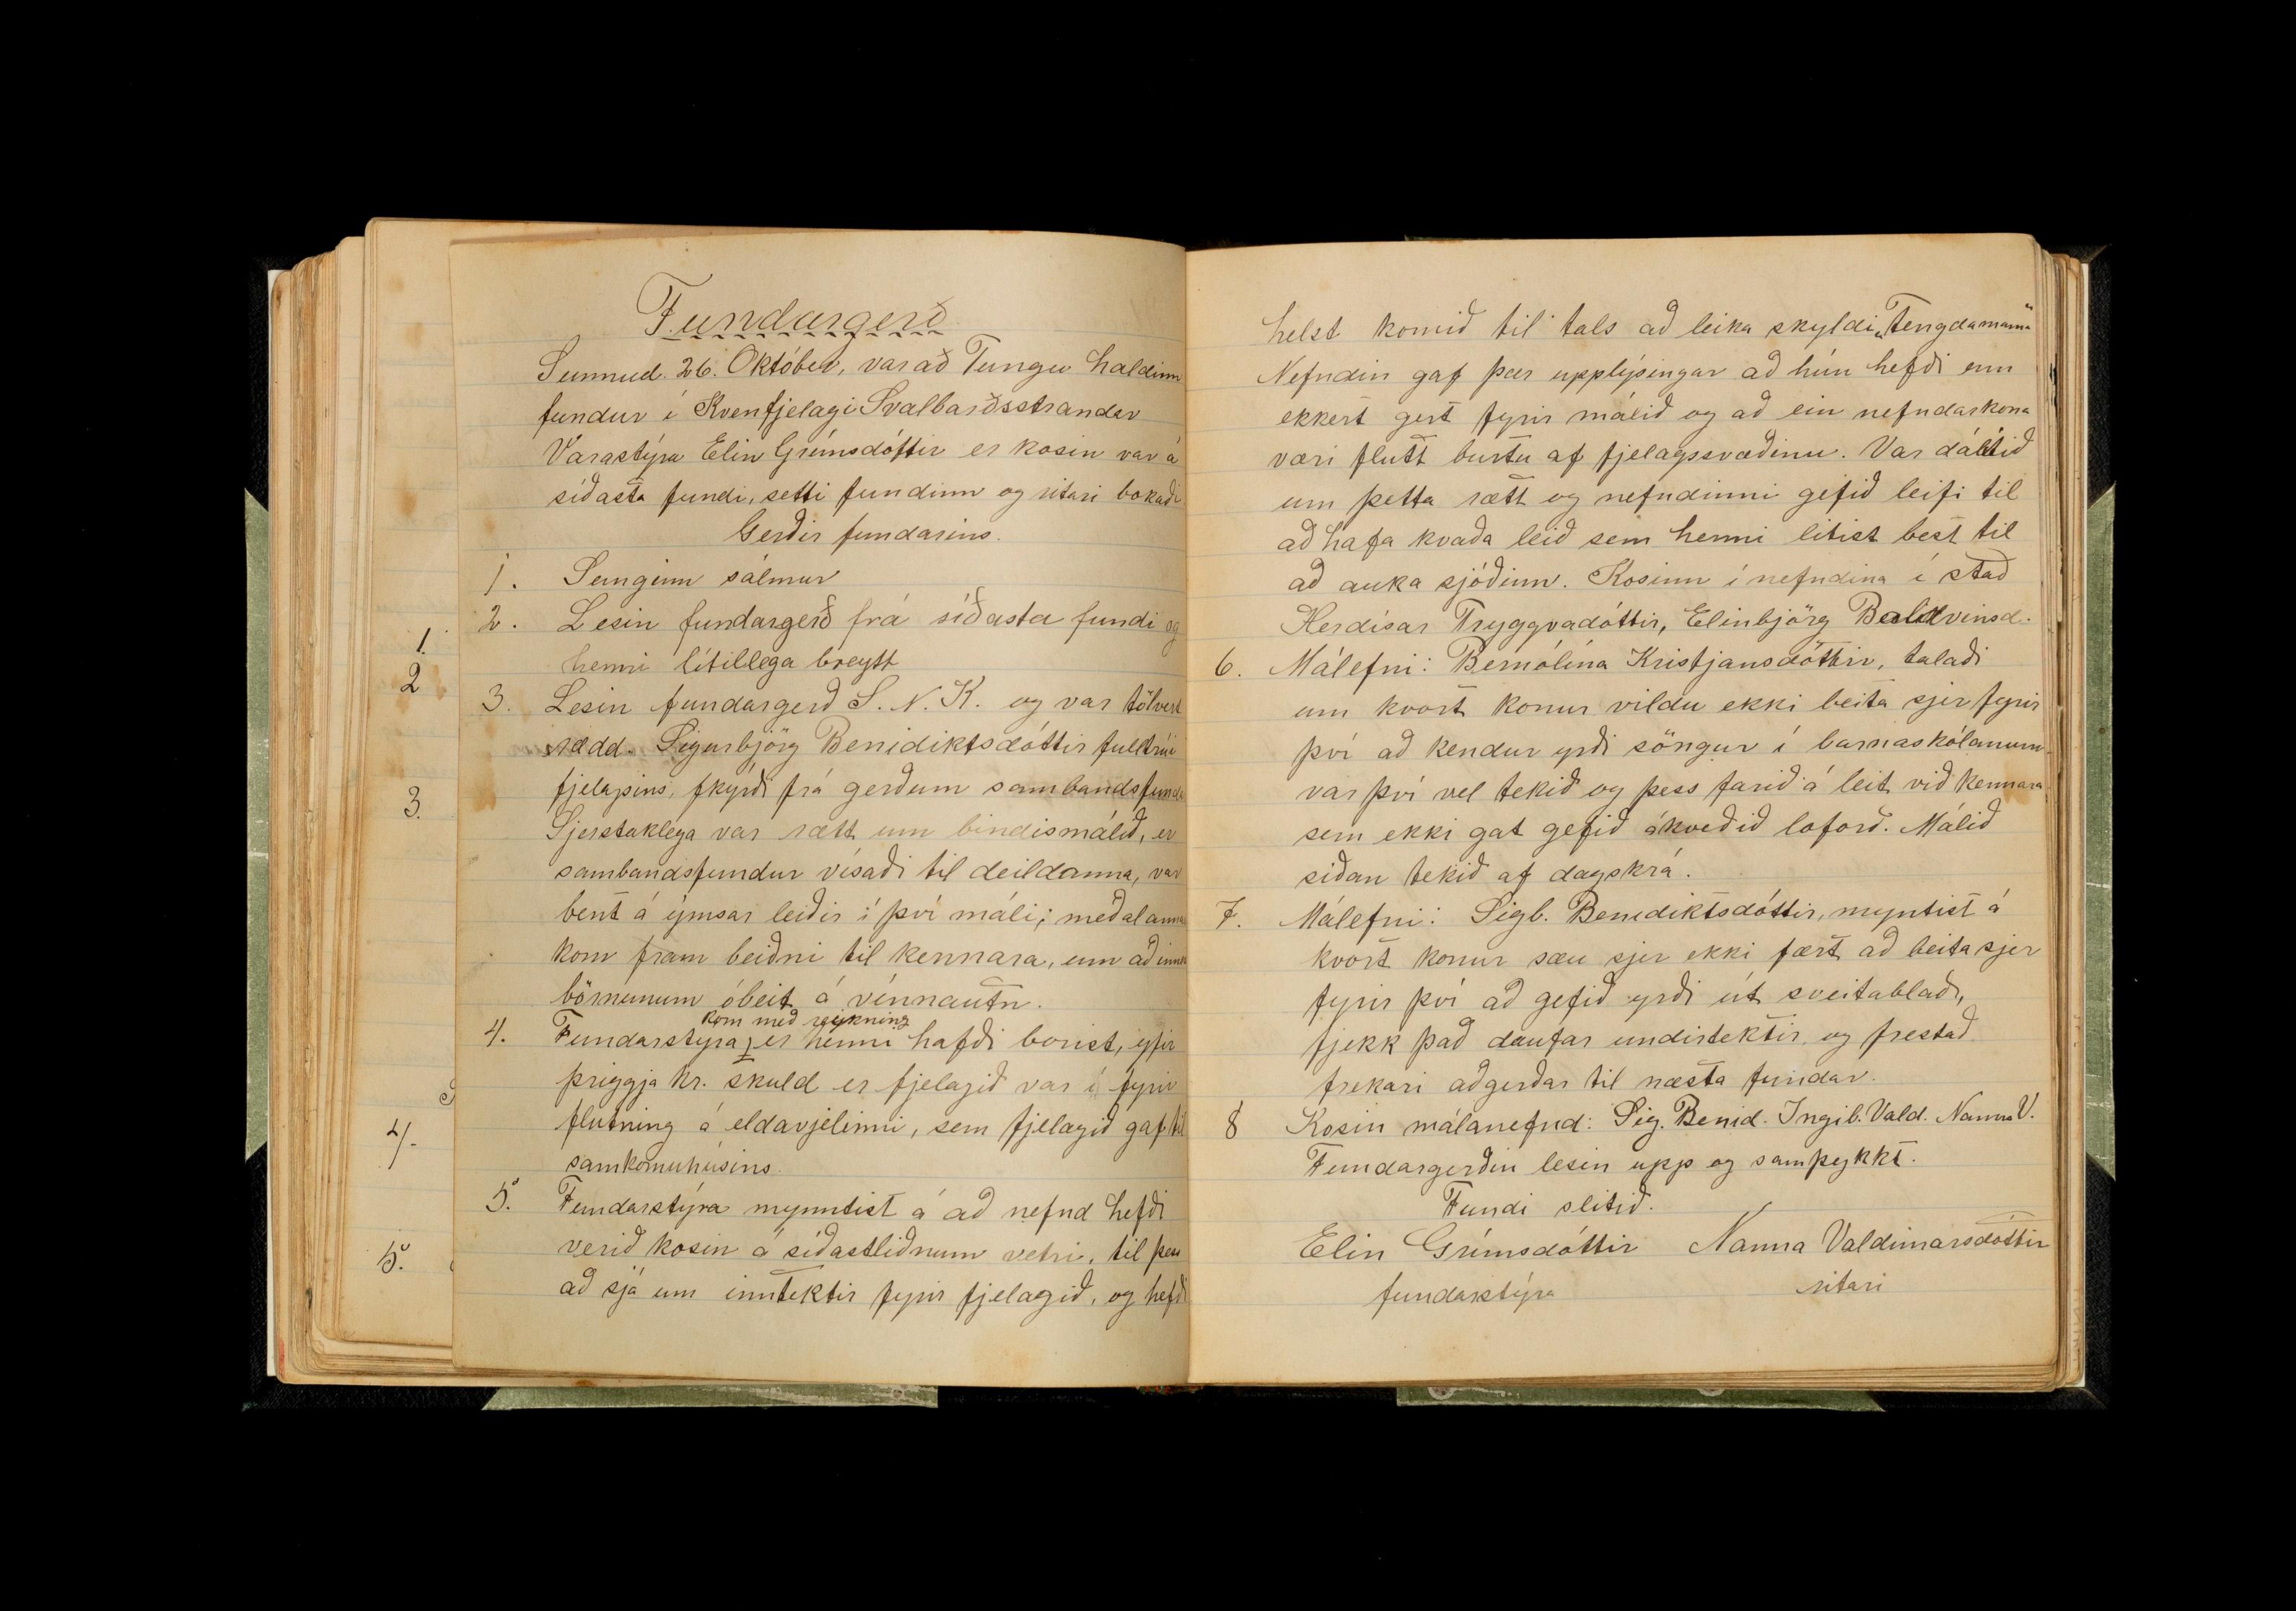 Fundargerð
Sunnud. 26. Október, var að Tungu haldinn
fundur í Kvenfjelagi Svalbarðsstrandar
Varastýra Elin Grímsdóttir er kosin var á
síðasta fundi, setti fundinn og ritari bokaði
Gerðir fundarins.
1. Sunginn sálmur
2. Lesin fundargerð frá síðasta fundi og
henni lítillega breytt
3. Lesin fundargerð S. N. K. og var tölvert
rædd. Sigurbjörg Benidiktsdóttir fulltrúi
fjelagsins, skýrði frá gerðum sambandsfunda
Sjerstaklega var rætt um bindismálið, er
sambandsfundur vísaði til deildanna, var
bent á ýmsar leiðir í því máli; meðal anna
kom fram beiðni til kennara, um að innræ
börnunum óbeit á vínnautn.
kom með reikning
4. Fundarstýra, er henni hafði borist, yfir
þriggja kr. skuld er fjelagið var í fyrir
flutning á eldavjelinni, sem fjelagið gaf til
samkomuhúsins.
5. Fundarstýra mynntist á að nefnd hefði
verið kosin á síðastliðnum vetri, til þess
að sjá um inntektir fyrir fjelagið, og hefði
1.
2
3.
4.
5.
helst komið til tals að leika skyldi „Tengdamama"
Nefndin gaf þær upplýsingar að hún hefði enn
ekkert gert fyrir málið og að ein nefndarkona
væri flutt burtu af fjelagssvæðinu. Var dálítið
um þetta rætt og nefndinni gefið leifi til
að hafa kvaða leið sem henni lítist best til
að auka sjóðinn. Kosinn í nefndina í stað
Herdísar Tryggvadóttir, Elinbjörg Baldvinsd.
6. Málefni: Bernólína Kristjansdóttir, talaði
um kvort konur vildu ekki beita sjer fyrir
því að kendur yrði söngur í barnaskólanum.
var því vel tekið og þess farið á leit við kennara
sem ekki gat gefið ákveðið loforð. Málið
siðan tekið af dagskrá.
7. Málefni: Sigb. Benediktsdóttir, myntist á
kvort konur sæu sjer ekki fært að beita sjer
fyrir því að gefið yrði út sveitablað,
fjekk það daufar undirtektir, og frestað
frekari aðgerðar til næsta fundar.
8 Kosin málanefnd: Sig. Benid. Ingib. Vald. Nanna V.
Fundargerðin lesin upp og samþykkt.
Fundi slitið.
Elin Grímsdóttir Nanna Valdimarsdóttir
fundarstýra ritari